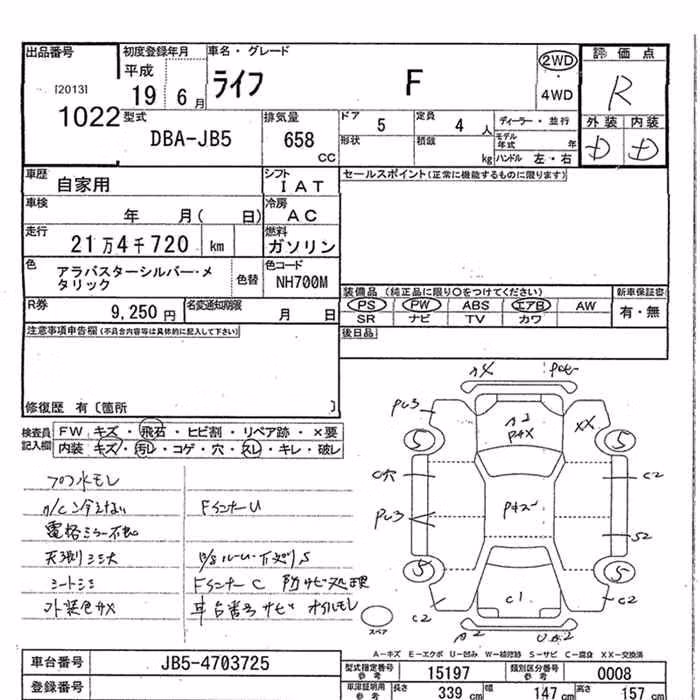 出品番号
初度登録年月
車名・グレード
2WD
評価点
[2013]
平成
ライフ F
R
1022
19 6 月
4WD
型式
排気量
ドア 5
定員 4 人
ディーラー・並行
外装 内装
DBA-JB5
658 CC
形状
積載 kg
モデル年式 年
ハンドル 左・右
D D
車歴
自家用
シフト
IAT
セールスポイント(正常に機能するものに限ります)
車検
年 月( 日)
冷房
AC
走行
21万4千720 km
燃料
ガソリン
色
アラバスターシルバー・メ
タリック
色替
色コード
NH700M
装備品(純正品に限り○をつけてください)
新車保証書
PS PW ABS エアB AW
有・無
SR ナビ TV カワ
R券
9,250 円
名変通知期限
月 日
後日品
注意事項申告欄(不具合内容等は具体的に記入して下さい)
修復歴 有〔箇所 〕
検査員
記入欄
FW キズ・飛石・ヒビ割・リペア跡・×要
内装 キズ・汚レ・コゲ・穴・スレ・キレ・破レ
電格ミラー不良
天張シミ大
シートシミ
外装色キズ
FインナーU
FインナーC 防サビ処理
車台番号サビ オイルモレ
XX
5
5
C穴
C2
S2
5
5
C1
C2
C2
A2
スペア
A-キズ E-エクボ U-凹み W-補修跡 S-サビ C-腐食 XX-交換済
車台番号
JB5-4703725
型式指定番号
参考
15197
類別区分番号
参考
0008
登録番号
車庫証明用
参考
長さ 339 cm
幅 147 cm
高さ 157 cm